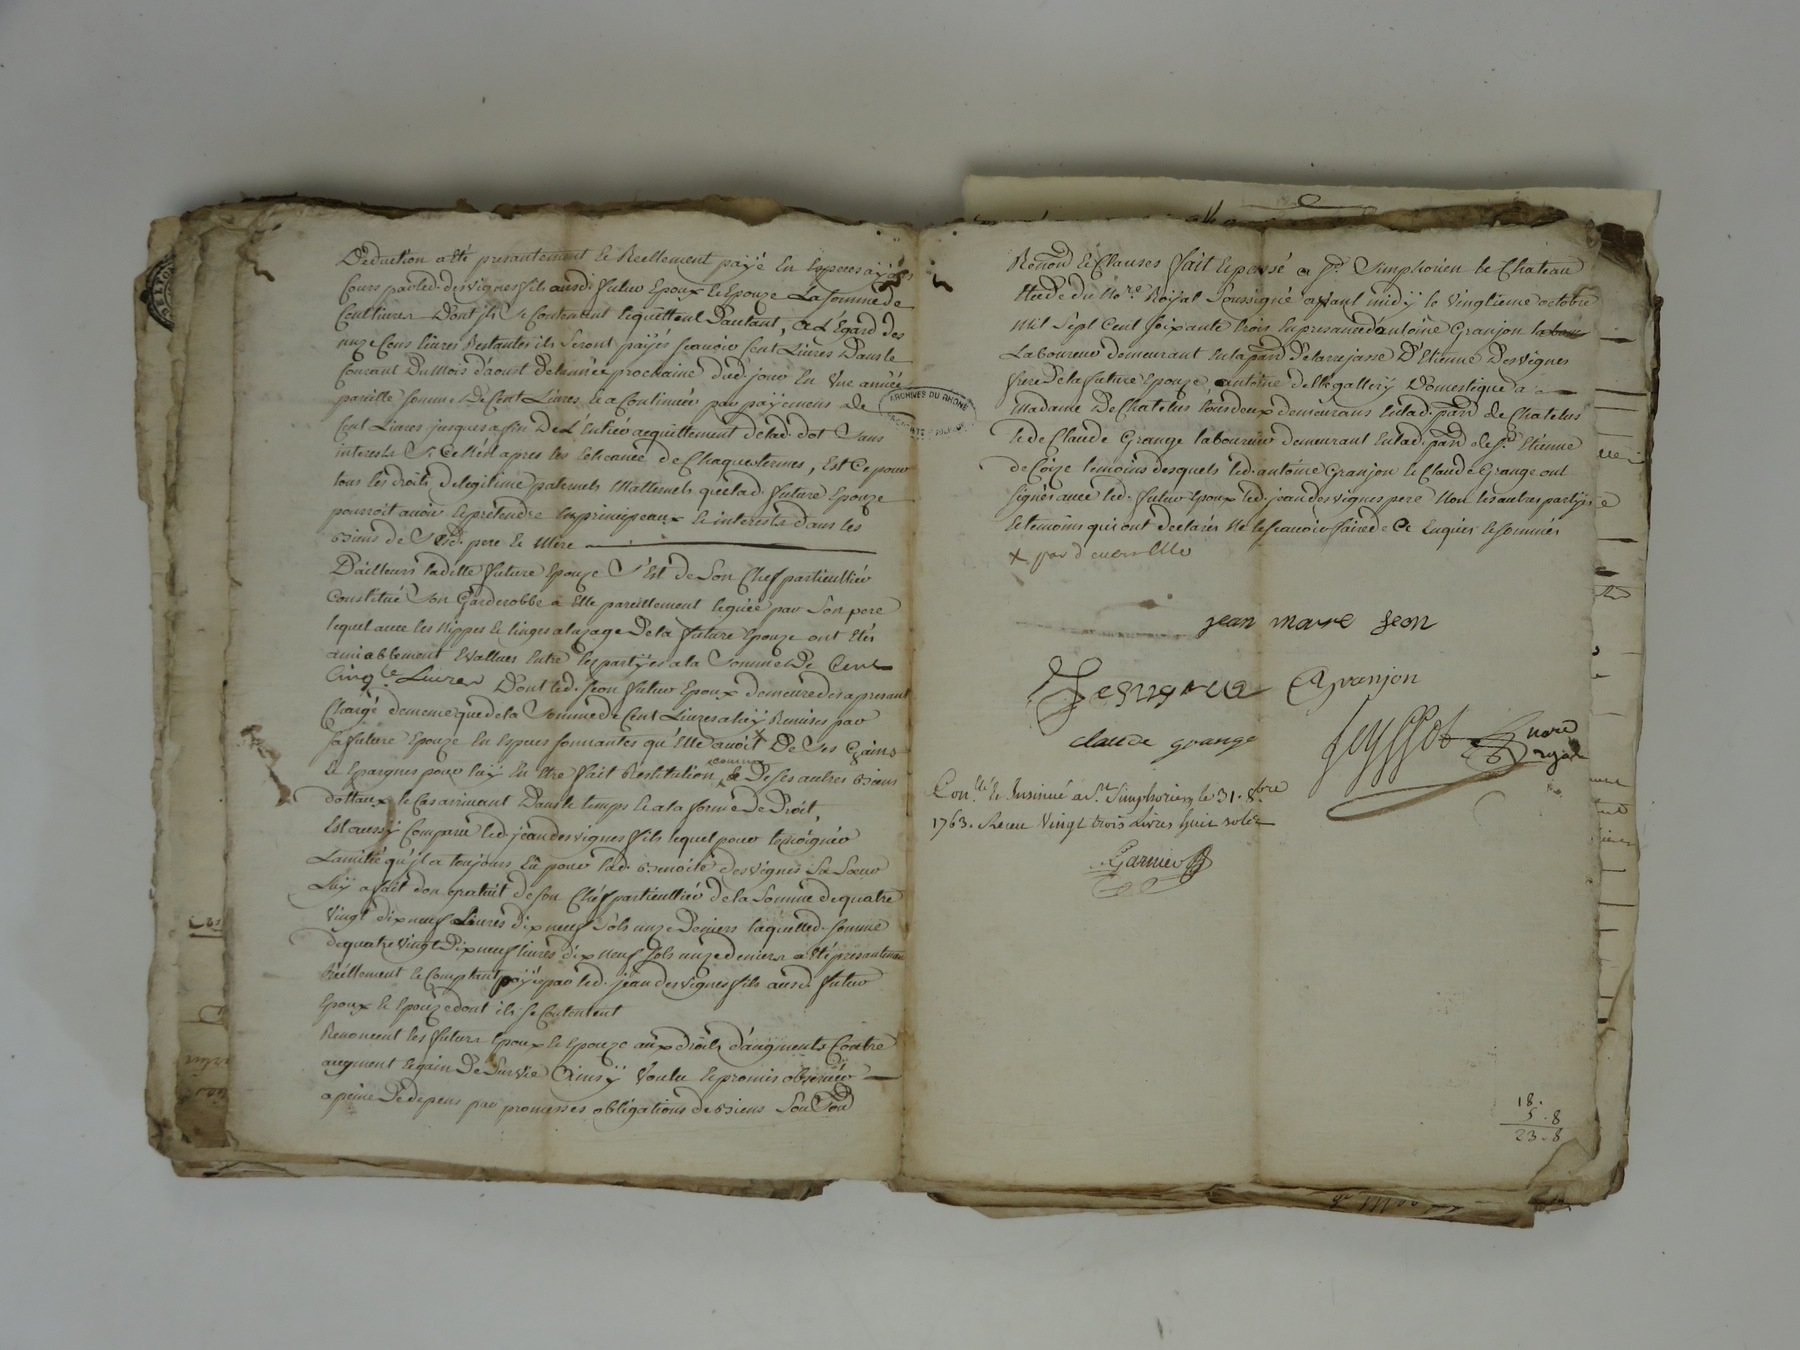 Deduction a été presantement et Reellement payé En Especes ayans
Cours par led. desvignes fils ausd. futur Epoux et Epouze La somme de
Cent livres Dont ils Se Contentent et quittent D'autant, et a L'Egard des
unze Cens livres Restantes ils Seront payés scauoir Cent Livres Dans le
Courant Du Mois d'aoust De l'année prochaine dud. jour En Une année
pareille somme De Cent Livres et a Continuer par payemens de
Cent Livres jusques a fin De L'Entier acquittement de lad. dot Sans
interests Si Ce n'est apres les Echeance de Chaques termes, Est Ce pour
tous les droits de legitime paternels Maternels que lad. future Epouze
pourroit avoir et prétendre En principeaux et interests dans les
Biens de Sesd. pere et Mere
D'ailleurs laditte future Epouze S'Est de Son Chef particullier
Constitué Son Garderobbe a Elle pareillement leguée par Son pere
lequel auec les Nippes et linges a l'uzage De la future Epouze ont Etés
amiablement Evallués Entre les partyes a la Somme De Cent
Cinq.te Livres Dont led. Jeon futur Epoux demeure des a presant
Chargé de meme que de la Somme de Cent Livres a luy Remises par
sa future Epouze En Especes sonnantes qu'Elle avoit x De Ses Gains
et Epargnes pour luy En Etre fait Restitution comme De Ses autres Biens
dottaux le Cas arrivant Dans le temps et a la forme De Droit,
Est aussy Comparu led. jean desvignes fils lequel pour temoigner
L'amitié qu'jl a toujours Eu pour lad. Benoite desvignes Sa Sœur
Luy a fait don gratuit de son Chef particullier de la Somme de quatre
Vingt dix neuf Livres dix neuf sols unze Deniers laquelled. somme
de quatre vingt Dix neuf livres dix Neuf sols unze deniers a Eté presantement
Réellement et Comptant payé par led. jean desvignes fils ausd. futur
Epoux et Epouze dont ils se Contentent
Renoncent les futurs Epoux et Epouze aux droits d'augments Contre
augment et gain De Survie Ainsy Voulu et promis observer
a peine De depens par promesses obligations de Biens Soum.on
Renon.on et Clauses fait et passé a S.t Simphorien le Chateau
Etude du No.re Royal Soussigné avant midy le Vingtieme octobre
Mil Sept Cent soixante trois En presance d'antoine Granjon
Laboureur demeurant En la par.sse De larajasse D'Etienne Desvignes
frere De la future Epouze, antoine dellegallery Domestique a
Madame De Chatelus tous deux demeurans En lad. par.sse de Chatelus
et de Claude Grange laboureur demeurant En lad. par.sse de S.t Etienne
de Coize temoins desquels led. antoine Granjon et Claude Grange ont
signés auec led. futur Epoux led. jean desvignes pere Non les autres partyes
et temoins qui ont declarés Ne le scauoir faire de Ce Enquis et sommés
x par deuers Elle
jean marre Jeon
Desvignes Granjon
claude grange
no.re
royal
Con.llé et Insinué a S.t Simphorien le 31. 8.bre
1763. Receu Vingt trois Livres huit sols
Garnier
18.
5 . 8
23 . 8
ARCHIVES DU RHÔNE